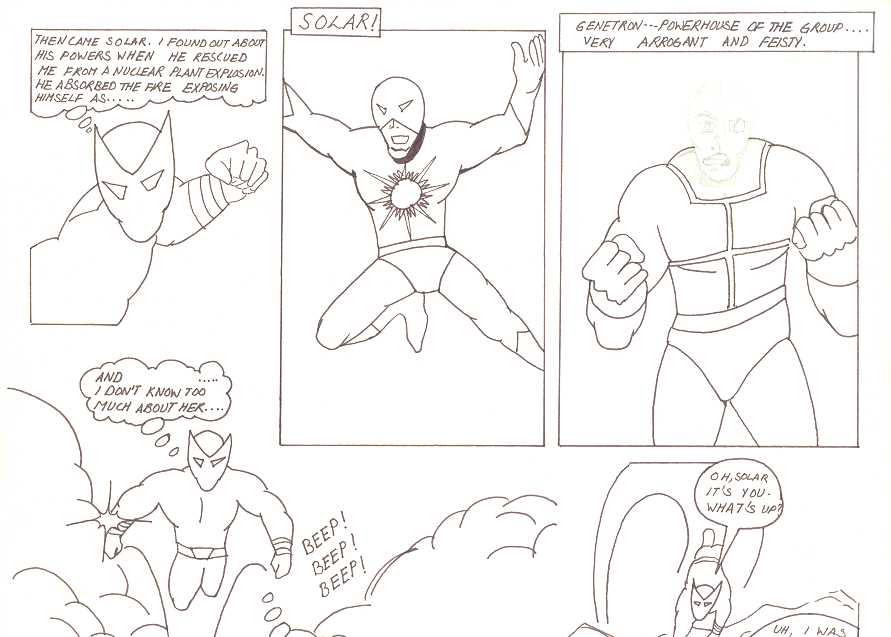 THEN CAME SOLAR. I FOUND OUT ABOUT
HIS POWERS WHEN HE RESCUED
ME FROM A NUCLEAR PLANT EXPLOSION.
HE ABSORBED THE FIRE EXPOSING
HIMSELF AS.....
SOLAR!
GENETRON---POWERHOUSE OF THE GROUP....
VERY ARROGANT AND FEISTY.
AND .....
I DON'T KNOW TOO
MUCH ABOUT HER....
BEEP!
BEEP!
BEEP!
OH, SOLAR
IT'S YOU.
WHAT'S UP?
UH, I WAS